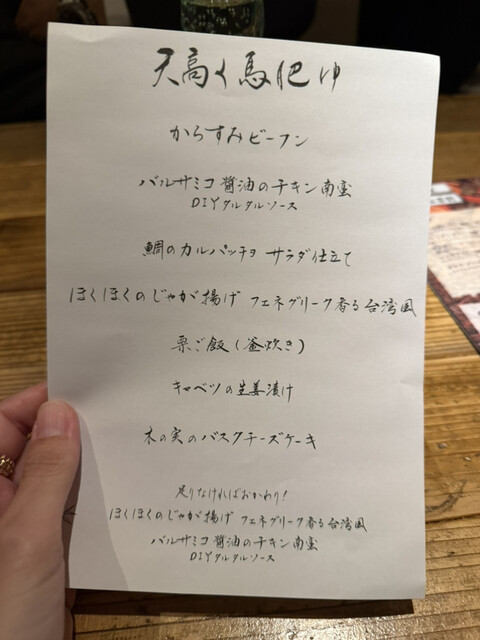 天高く馬肥ゆ
からすみビーフン
バルサミコ醤油のチキン南蛮
DIYタルタルソース
鯛のカルパッチョ サラダ仕立て
ほくほくのじゃが揚げ フェネグリーク香る台湾風
栗ご飯(釜炊き)
キャベツの生姜漬け
木の実のバスクチーズケーキ
足りなければおかわり!
ほくほくのじゃが揚げ フェネグリーク香る台湾風
バルサミコ醤油のチキン南蛮
DIYタルタルソース